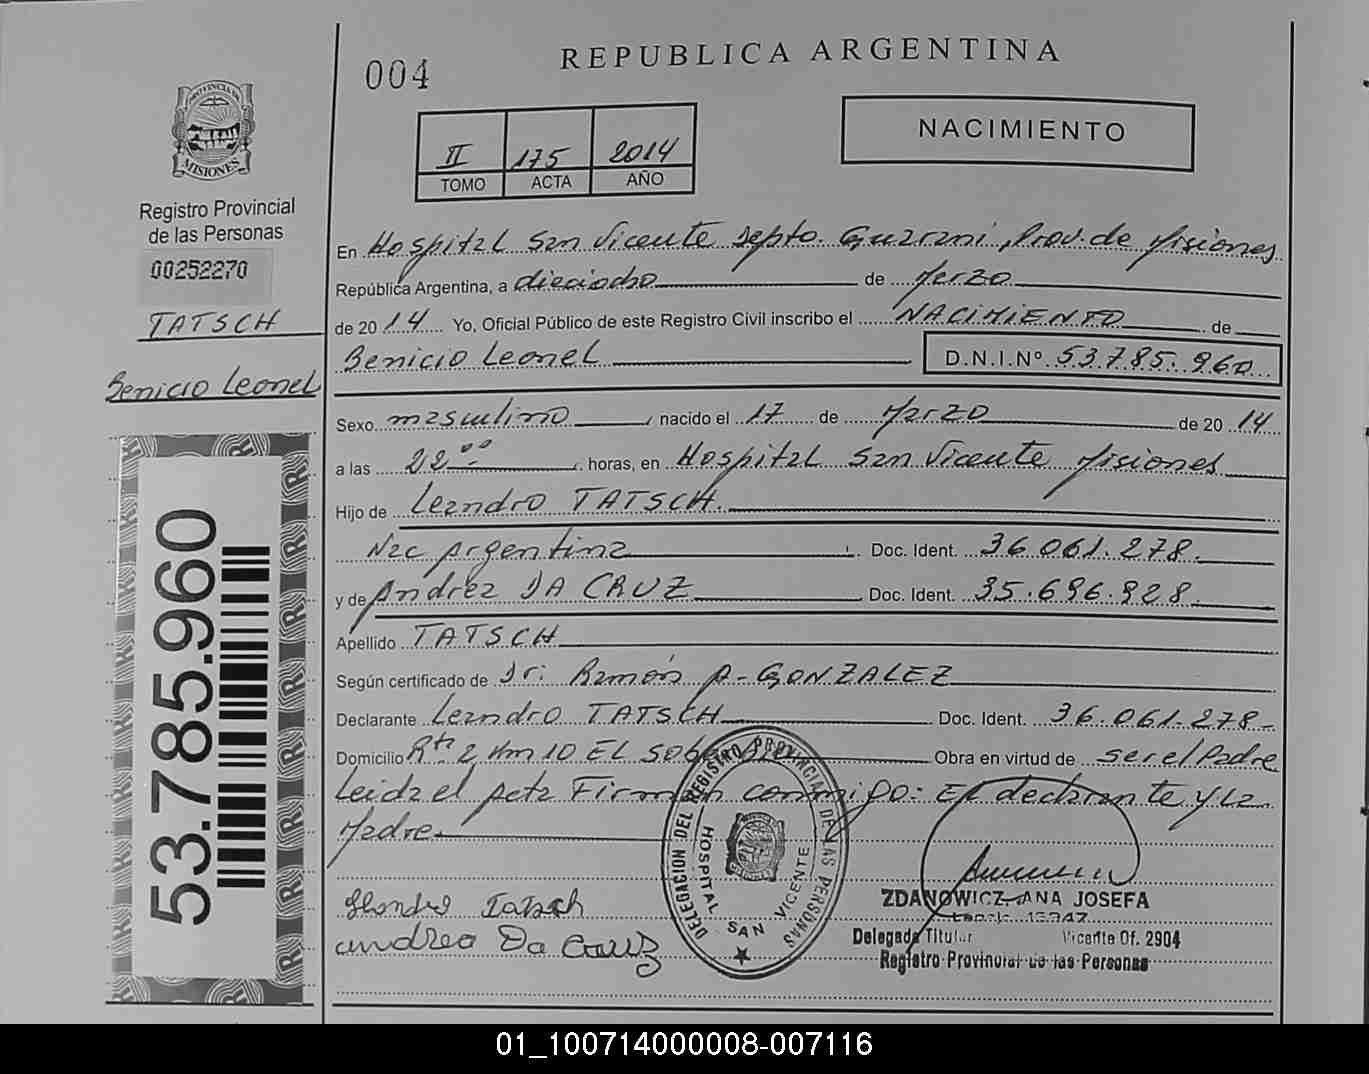 004
REPUBLICA ARGENTINA
II 175 2014
TOMO ACTA AÑO
NACIMIENTO
PROVINCIA DE
MISIONES
Registro Provincial
de las Personas
00252270
TATSCH
Benicio Leonel
53.785.960
En Hospital San Vicente Depto. Guarani, Prov. de Misiones
República Argentina, a dieciocho de Marzo
de 2014 Yo, Oficial Público de este Registro Civil inscribo el NACIMIENTO de
Benicio Leonel D.N.I.Nº 53.785.960
Sexo masculino, nacido el 17 de Marzo de 2014
a las 22 00 horas, en Hospital San Vicente Misiones
Hijo de Leandro TATSCH.
Nac Argentina Doc. Ident. 36.061.278.
y de Andrea DA CRUZ Doc. Ident. 35.696.828
Apellido TATSCH
Según certificado de Dr. Ramón A. GONZALEZ
Declarante Leandro TATSCH Doc. Ident. 36.061.278
Domicilio Rta 2 Km 10 EL Obra en virtud de ser el Padre
Leida el acta Firman conmigo: El declarante y la
Madre
DELEGACION DEL REGISTRO PROVINCIAL DE LAS PERSONAS
HOSPITAL SAN VICENTE
Tatsch
andrea Da Cruz
ZDANOWICZ ANA JOSEFA
Delegada Titular Vicente Of. 2904
Registro Provincial de las Personas
01_100714000008-007116